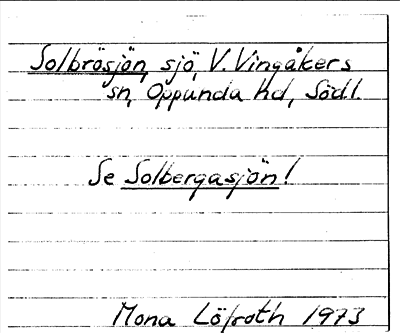 Solbrösjön, sjö, V. Vingåkers
sn, Oppunda hd, Södl.
Se Solbergasjön!
Mona Löfroth 1973